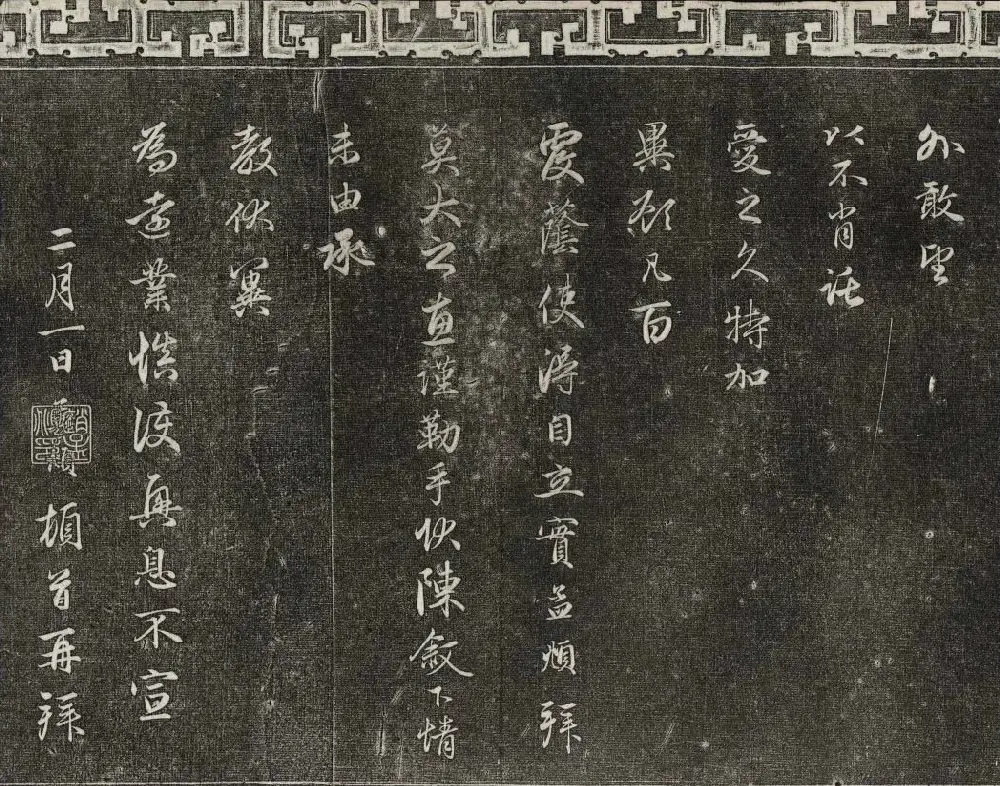 外敢望
以不肖託
愛之久特加
異顧凡百
覆蔭使得自立實孟頫拜
莫大之惠謹勒手狀陳敘下情
未由承
教伏冀
為遠業慎護興息不宣
二月一日頓首再拜